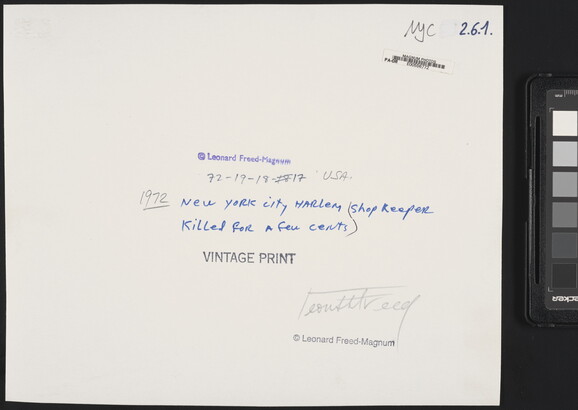 NYC 2.6.1.
MAGNUM PHOTOS
© Leonard Freed-Magnum
72-19-18-#17 USA.
1972 New York City Harlem (shop keeper
Killed for a few cents)
VINTAGE PRINT
Leonard Freed
© Leonard Freed-Magnum